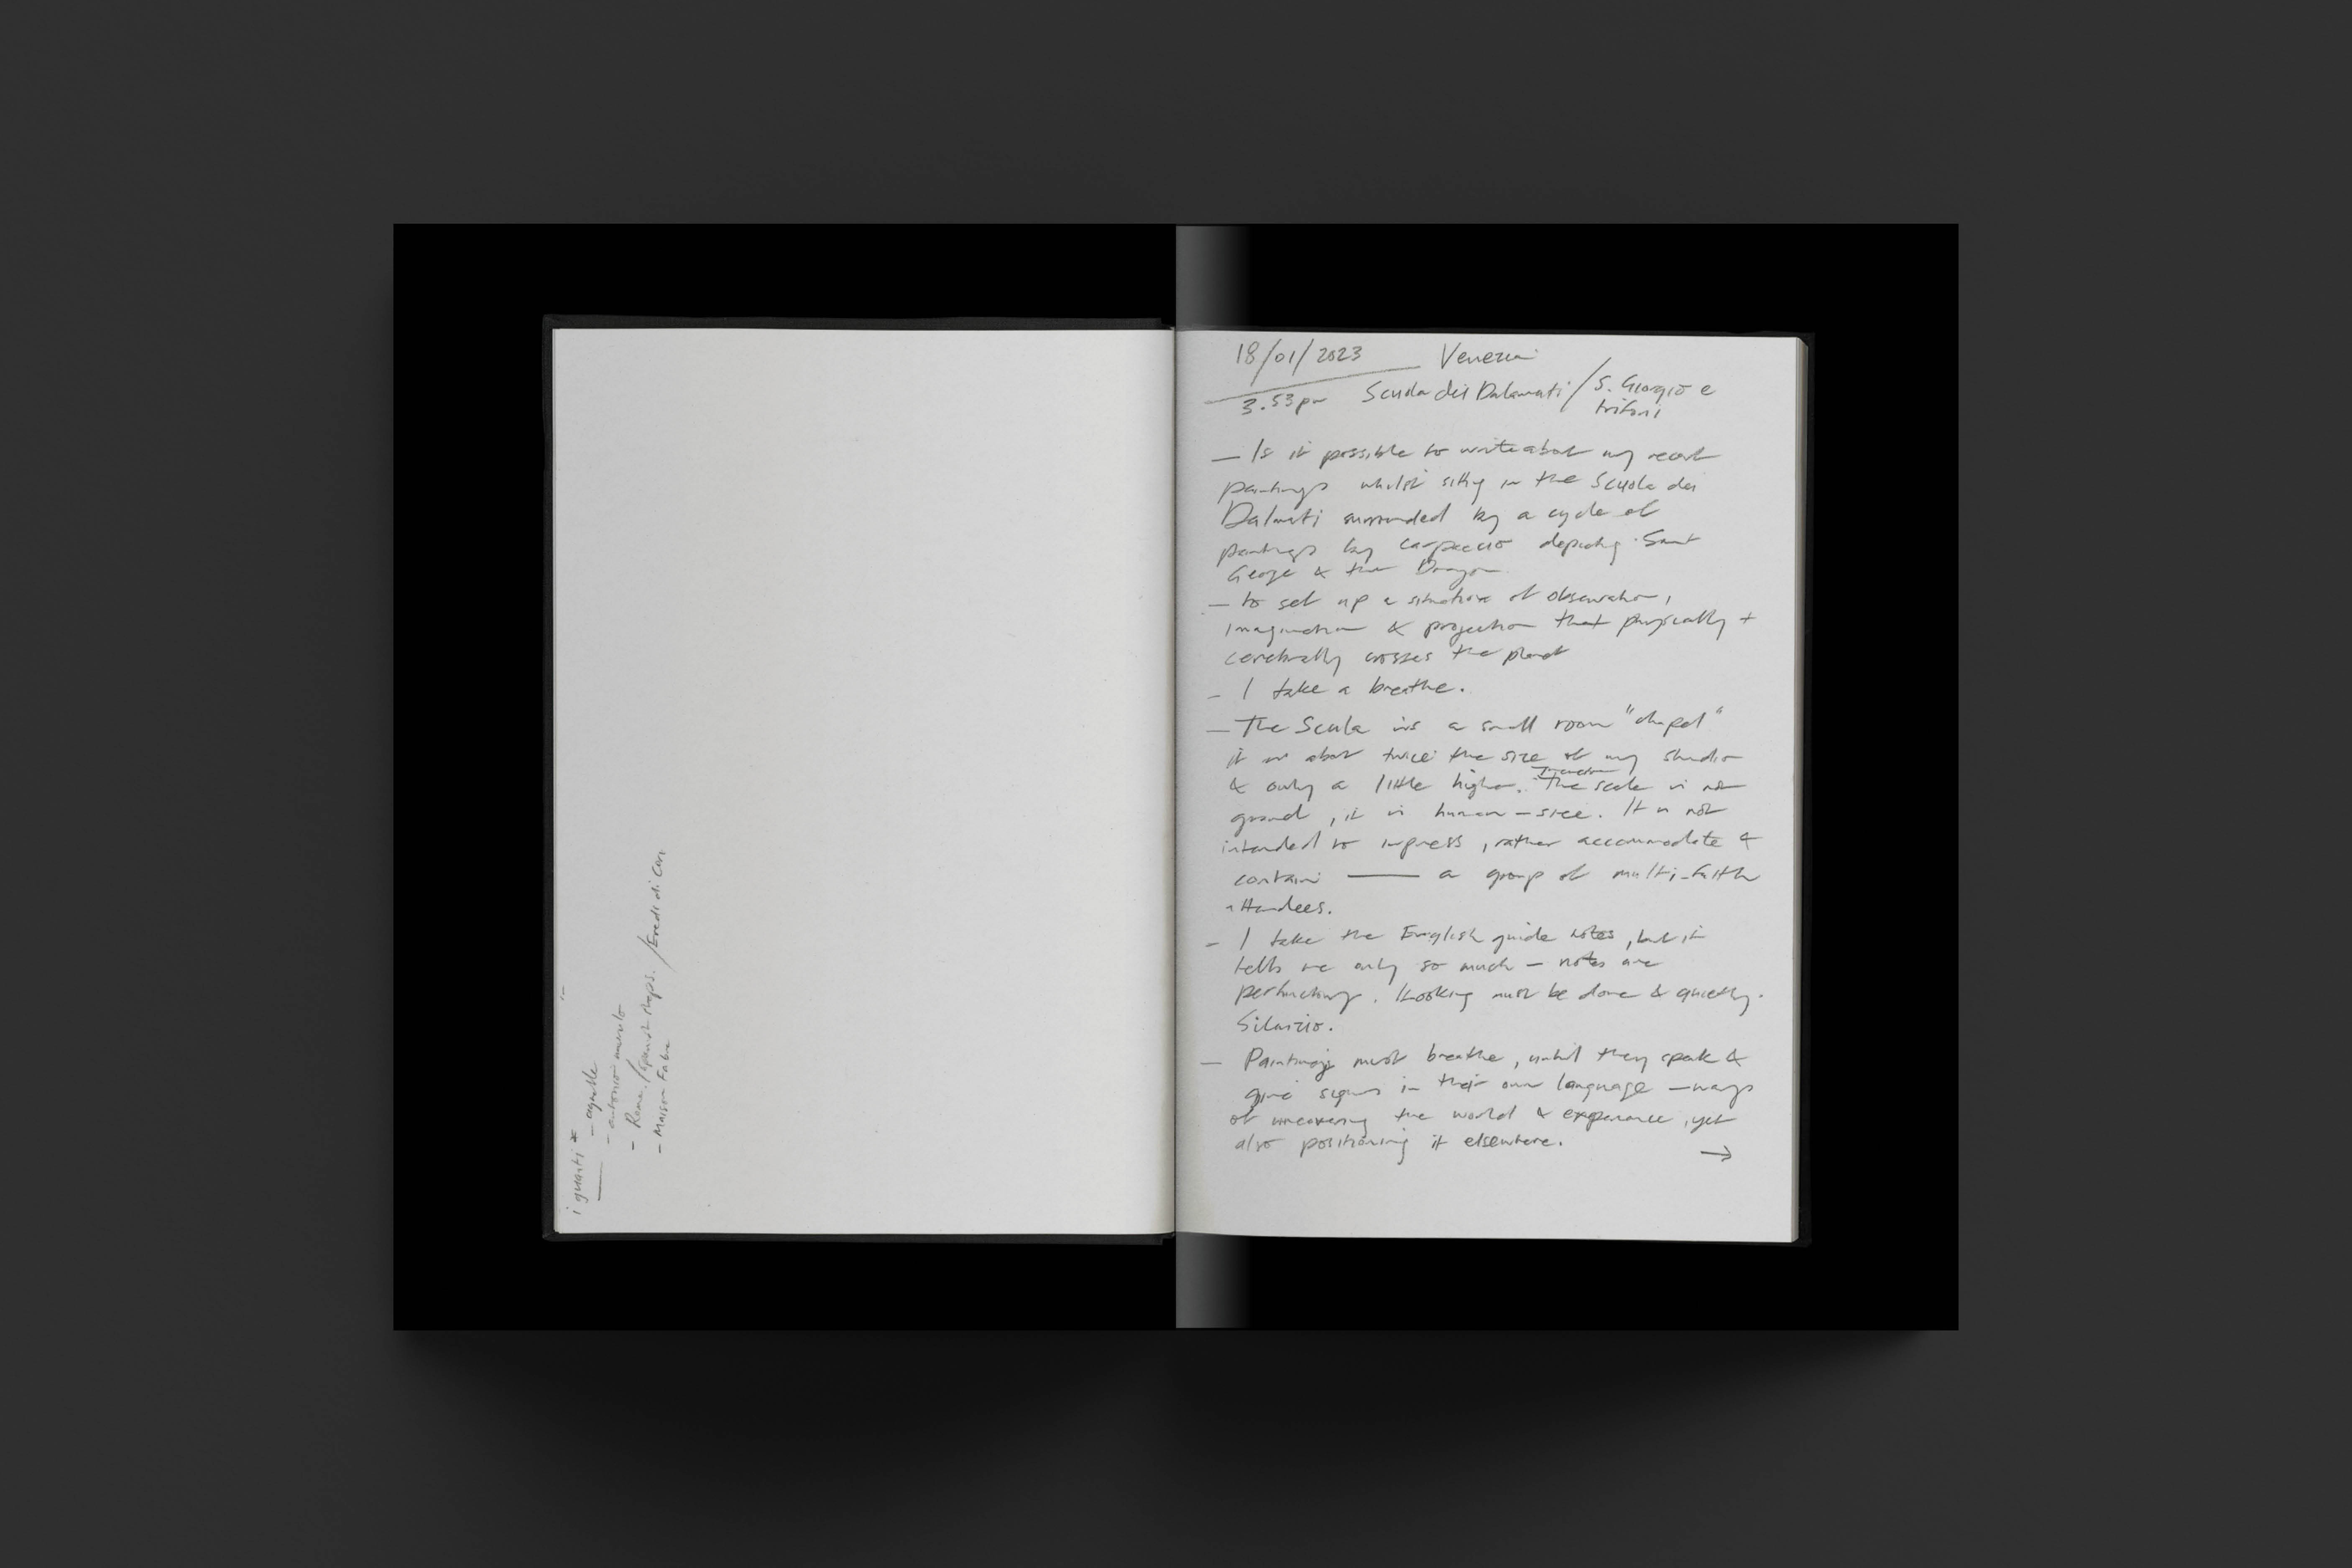 i guanti *
- agnelle
- Roma / Spanish steps. / Eredi di
- Maison Fabre
18/01/2023 Venezia
3.53pm Scuola dei Dalamati / S. Giorgio e
trifoni
— Is it possible to write about my recent
paintings whilst sitting in the Scuola dei
Dalmati surrounded by a cycle of
paintings by Carpaccio depicting Saint
George & the Dragon.
— to set up a situation of observation,
imagination & projection that physically +
cerebrally crosses the planet
- I take a breathe.
— The Scula is a small room "chapel"
it is about twice the size of my studio
& only a little higher. The scale is not
grand, it is human-size. It is not
intended to impress, rather accommodate &
contain —— a group of multi-faith
attendees.
- I take the English guide notes, but it
tells me only so much — notes are
perfunctory. Looking must be done & quietly.
Silenzio.
— Paintings must breathe, until they speak &
give signs in their own language — ways
of uncovering the world & experience, yet
also positioning it elsewhere.
→